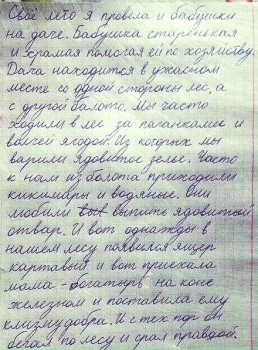 Своё лето я провела у бабушки
на даче. Бабушка старенькая
и хромая помогая ей по хозяйству.
Дача находится в ужасном
месте со одной стороны лес, а
с другой болото. Мы часто
ходили в лес за поганками и
волчей ягодой. Из которых мы
варили ядовитое зелье. Часто
к нам из болота приходили
кикиморы и водяные. Они
любили выпить ядовитый
отвар. И вот однажды в
нашем лесу появился ящер
картавый и вот приехала
мама - богатырь на коне
железном и поставила ему
клизму добра. И с тех пор он
бегал по лесу и срал правдой.